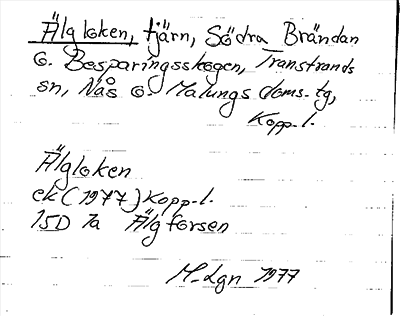 Älgloken, tjärn, Södra Brändan
o. Besparingsskogen, Transtrands
sn, Nås o. Malungs doms-tg,
Kopp-l.
Älgloken
ek (1977) Kopp-l.
15D 1a Älgforsen
M-Lgn 1977